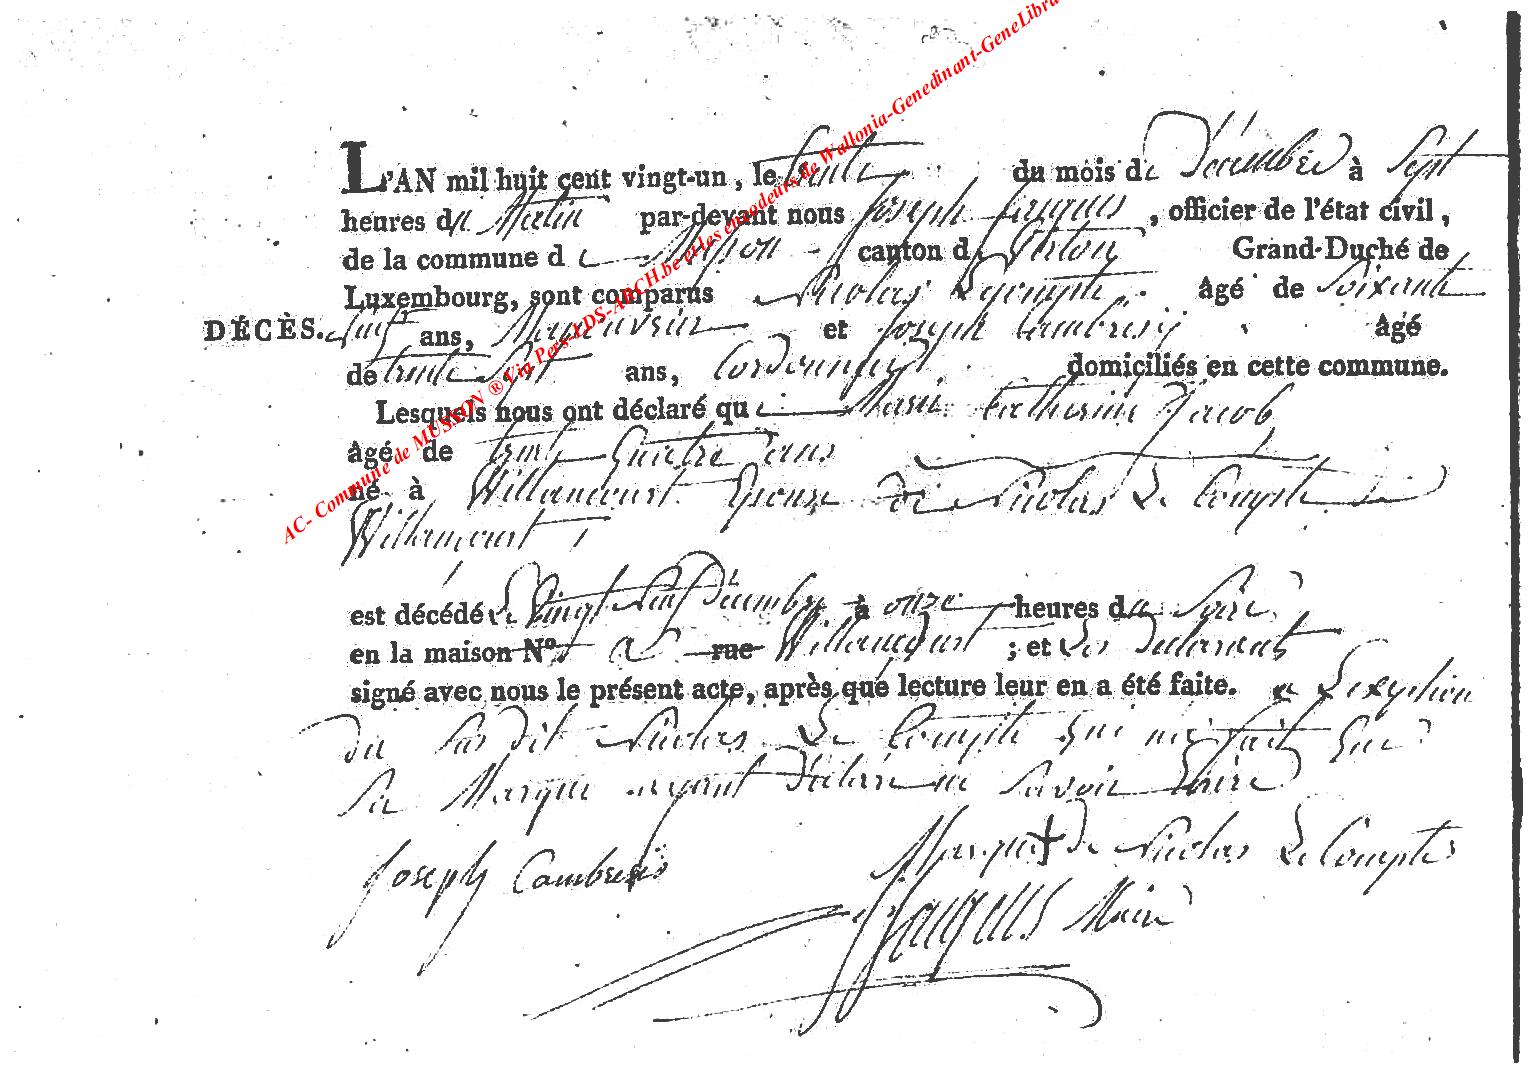 AC- Commune de MUSSON ® Via Pers-LDS-ARCH.be et les encodeurs de Wallonia-Genedinant-GeneLibra
L'AN mil huit cent vingt-un, le trente du mois de Décembre à Sept
heures du Matin par-devant nous Joseph Jacques, officier de l'état civil,
de la commune de Musson canton de Virton Grand-Duché de
Luxembourg, sont comparus Nicolas Lecompte Agé de Soixante
DÉCÈS. neuf ans, Manoeuvrier et Joseph Cambresy Agé
de trente Sept ans, Cordonnier domiciliés en cette commune.
Lesquels nous ont déclaré que Marie Catherine Jacob
Agé de trente Quatre ans
né à Willancourt Epouse de Nicolas Le Compte de
Willancourt,
est décédé le Vingt neuf Décembre à onze heures du Soire
en la maison N° a rue Willancourt ; et Les declarants
signé avec nous le présent acte, après que lecture leur en a été faite. a Lexeption
du Sus dit Nicolas Le Compte qui n'a fait que
Sa Marque ayant déclaré ne Savoir Ecrire
Marque de Nicolas Le Compte
Joseph Cambresis
Jacques Maire